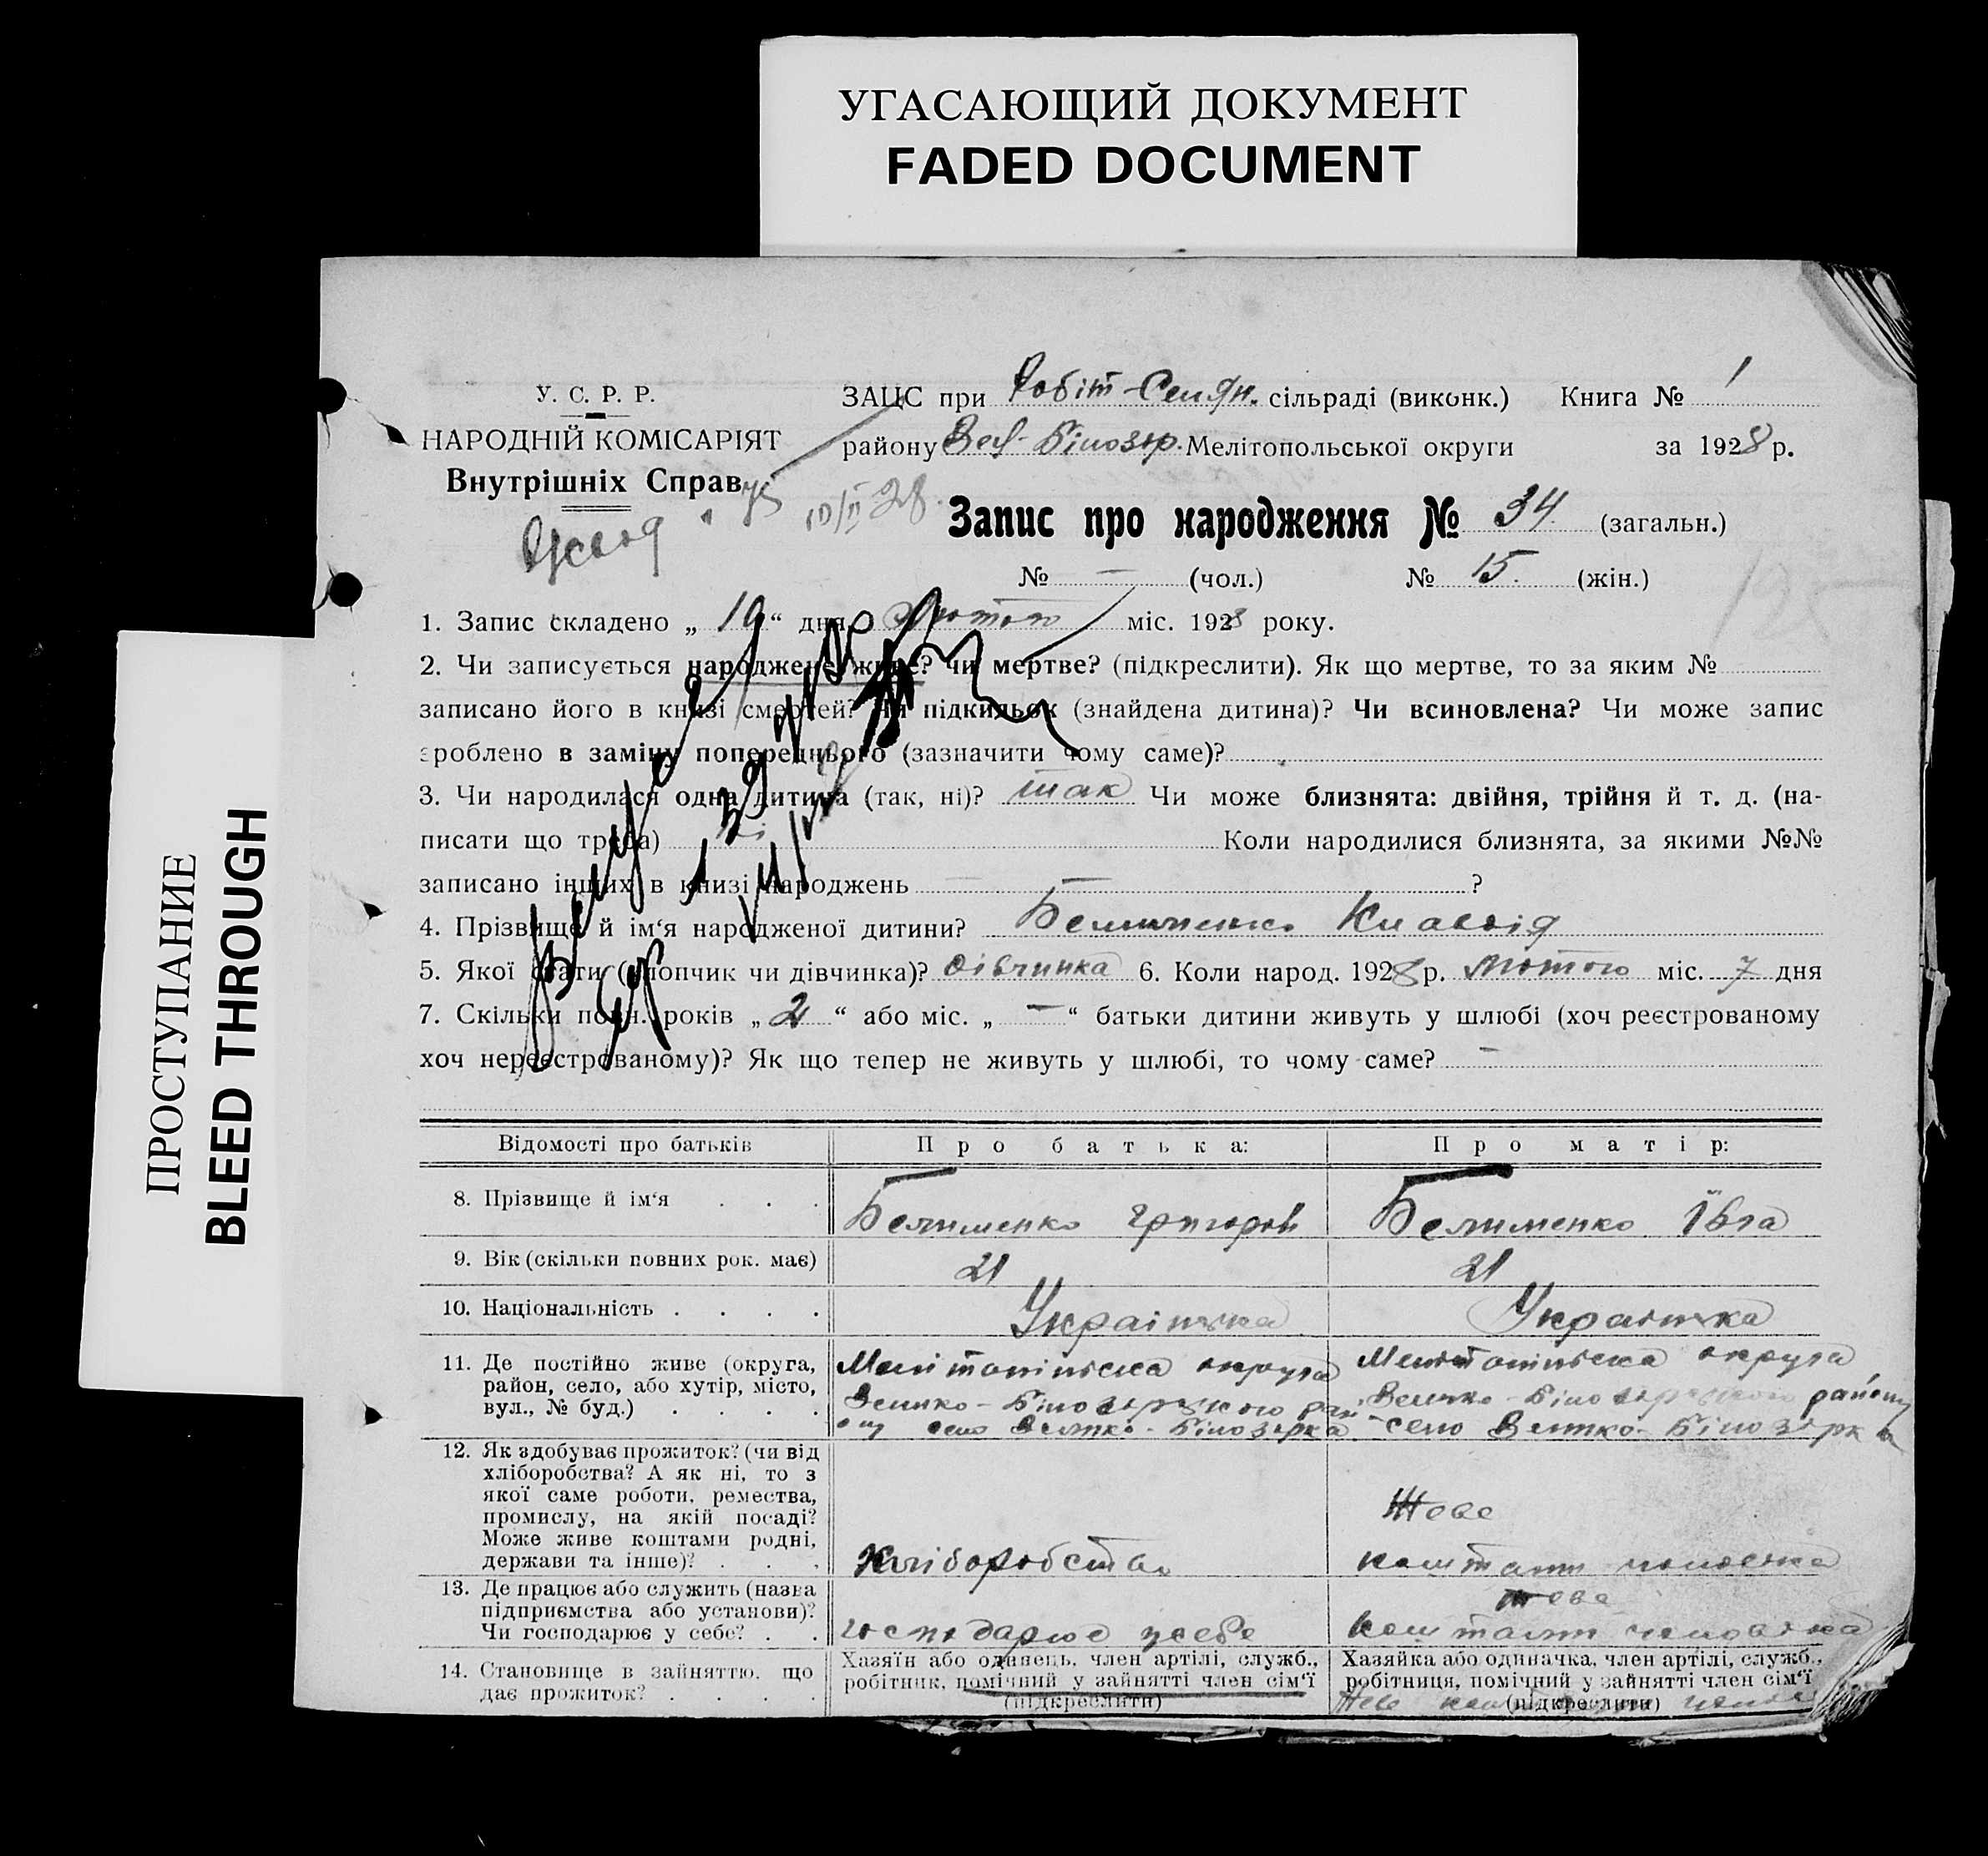 УГАСАЮЩИЙ ДОКУМЕНТ
FADED DOCUMENT
ПРОСТУПАНИЕ
BLEED THROUGH
У. С. Р. Р.
НАРОДНІЙ КОМІСАРІЯТ
Внутрішніх Справ
ЗАЦС при Робіт-Селян. сільраді (виконк.) Книга № 1
району Вел-Білозор. Мелітопольської округи за 1928 р.
10/II 28.
Запис про народження № 34 (загальн.)
№ — (чол.) № 15. (жін.)
1. Запис складено „ 10 “ дня Лютого міс. 1928 року.
2. Чи записується народжене живе? чи мертве? (підкреслити). Як що мертве, то за яким №
записано його в книзі смертей? Чи підкильок (знайдена дитина)? Чи всиновлена? Чи може запис
зроблено в заміну попереднього (зазначити чому саме)?
3. Чи народилася одна дитина (так, ні)? так Чи може близнята: двійня, трійня й т. д. (на-
писати що треба) ні Коли народилися близнята, за якими №№
записано інших в книзі народжень — ?
4. Прізвище й ім‘я народженої дитини?
5. Якої стати (хлопчик чи дівчинка)? дівчинка 6. Коли народ. 1928 р. лютого міс. 7 дня
7. Скільки повн. років „ 2 “ або міс. „ — “ батьки дитини живуть у шлюбі (хоч реєстрованому
хоч нереєстрованому)? Як що тепер не живуть у шлюбі, то чому саме? —
Відомості про батьків
Про батька:
Про матір:
8. Прізвище й ім‘я . . .
Белименко Григорій
Белименко Ївга
9. Вік (скільки повних рок. має)
21
21
10. Національність . . . .
Українка
Українка
11. Де постійно живе (округа,
район, село, або хутір, місто,
вул., № буд.) . . . .
Мелітопільска округа
Велико-Білозерського рай
ону село Велико-Білозірка
Мелітопільска округа
Велико-Білозерського району
село Велико-Білозірка
12. Як здобуває прожиток? (чи від
хліборобства? А як ні, то з
якої саме роботи, ремества,
промислу, на якій посаді?
Може живе коштами родні,
держави та інше)? . . .
Хліборобства
Живе
коштами чоловіка
13. Де працює або служить (назва
підприємства або установи)?
Чи господарює у себе? . .
господарює усебе
живе
коштами чоловіка
14. Становище в зайняттю, що
дає прожиток? . . . .
Хазяїн або одинець, член артілі, служб.,
робітник, помічний у зайнятті член сім‘ї
(підкреслити)
Хазяйка або одиначка, член артілі, служб.,
робітниця, помічний у зайнятті член сім‘ї
(підкреслити)